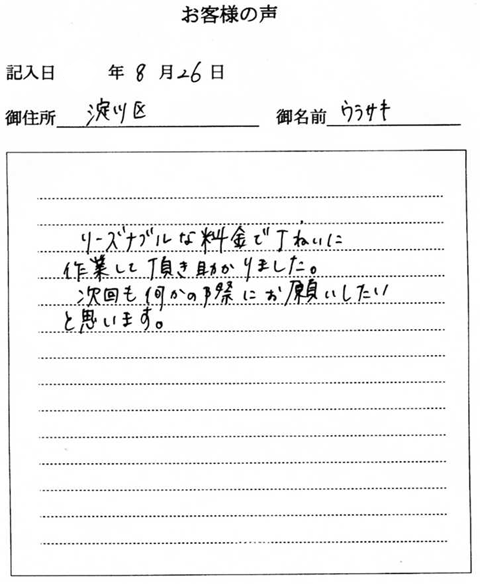 お客様の声
記入日 年 8 月 26 日
御住所 淀川区 御名前 ウラサキ
リーズナブルな料金で丁ねいに
作業して頂き助かりました。
次回も何かの際にお願いしたい
と思います。